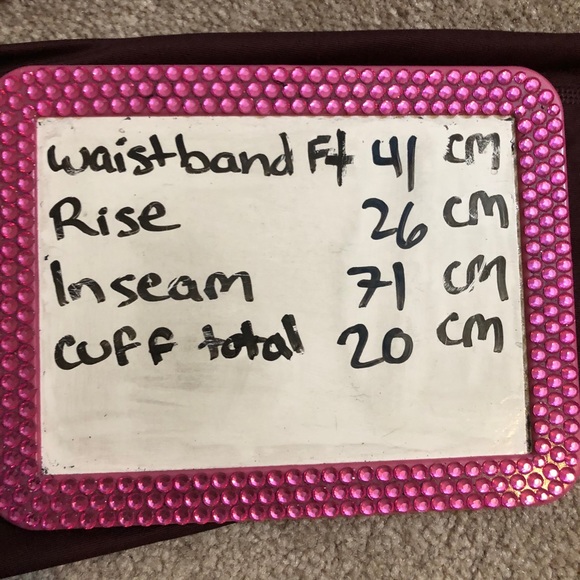 Waistband Ft 41 cm
Rise 26 cm
Inseam 71 cm
Cuff total 20 cm